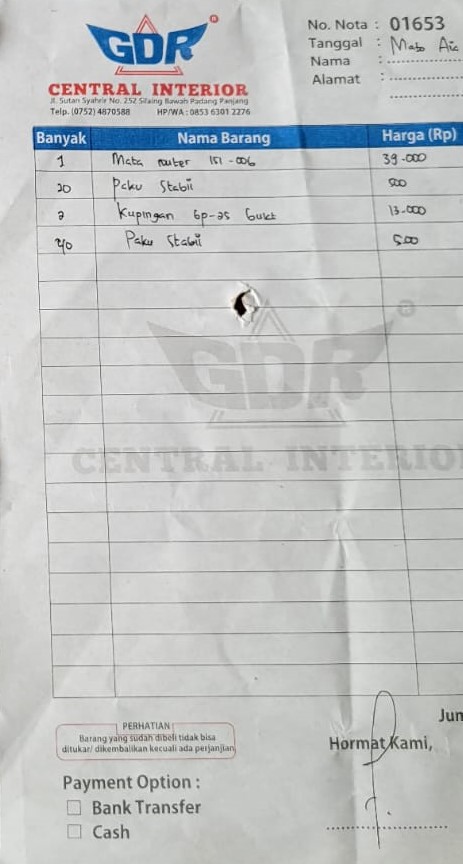 GDR®
CENTRAL INTERIOR
Jl. Sutan Syahrir No. 252 Silaing Bawah Padang Panjang
Telp. (0752) 4870588 HP/WA : 0853 6301 2276
No. Nota : 01653
Tanggal :
Nama :
Alamat :
Banyak Nama Barang Harga (Rp)
1 Mata router 151-006 39-000
20 Paku Stabil 500
2 Kupingan 6p-25 13-000
Paku Stabil 500
GDR®
CENTRAL INTERIO
Jum
PERHATIAN
Barang yang sudah dibeli tidak bisa
ditukar/ dikembalikan kecuali ada perjanjian
Hormat Kami,
Payment Option :
Bank Transfer
Cash